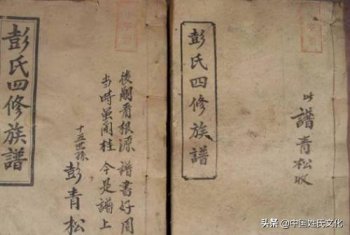 此譜青松收
彭氏四修族譜
後期有根源 譜書好用
当時虽闲 今是譜上
十五世孫 彭青松
彭氏四修族譜
头条 @中国姓氏文化